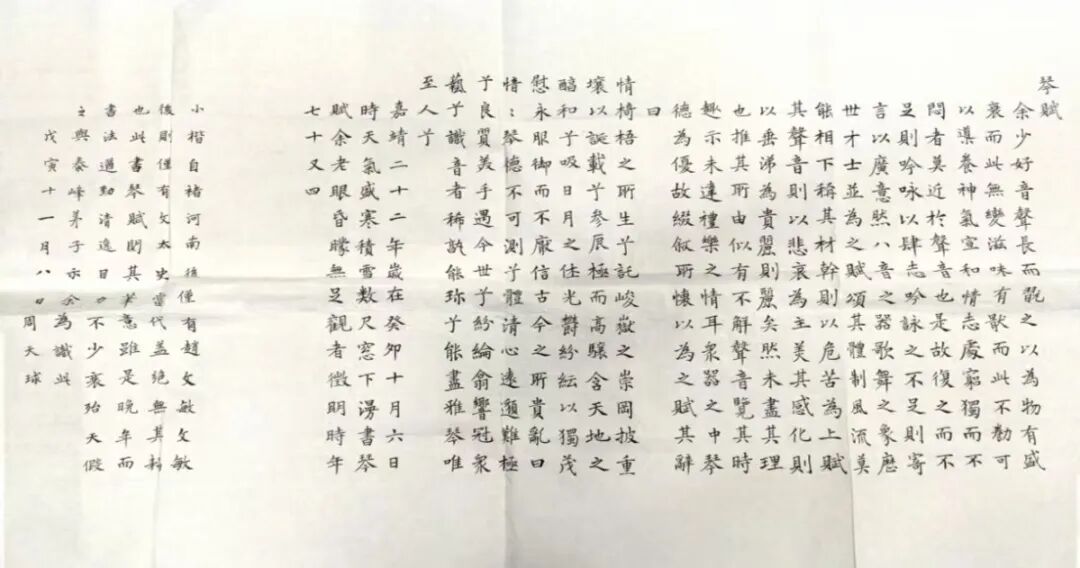 琴賦
余少好音聲長而翫之以為物有盛
衰而此無變滋味有猒而此不勌可
以導養神氣宣和情志處窮獨而不
悶者莫近於聲音也是故復之而不
足則吟咏以肆志吟詠之不足則寄
言以廣意然八音之器歌舞之象歷
世才士並為之賦頌其體制風流莫
能相下稱其材幹則以危苦為上賦
其聲音則以悲哀為主美其感化則
以垂涕為貴麗則麗矣然未盡其理
也推其所由似有不解聲音覽其時
趣示未達禮樂之情耳衆器之中琴
德為優故綴叙所懷以為之賦其辭
曰
情椅梧之所生兮託峻嶽之崇岡披重
壤以誕載兮參辰極而高驤含天地之
醕和兮吸日月之任光欝紛紜以獨茂
慰永服御而不厭信古今之所貴亂曰
愔：琴德不可測兮體清心遠邈難極
兮良質美手遇今世兮紛綸翕響冠衆
藝兮識音者稀孰能珍兮能盡雅琴唯
至人兮
嘉靖二十二年歲在癸卯十月六日
時天氣盛寒積雪數尺窓下漫書琴
賦余老眼昏矇無足觀者徵明時年
七十又四
小楷自褚河南後僅有趙文敏文敏
後則僅有文太史當代盖絶無其料
也此書琴賦閒其筆意雖是晚年而
書法遒勁清逸日日不少衰殆天假
之與秦峰茅子示余為識此
戊寅十一月八日周天球